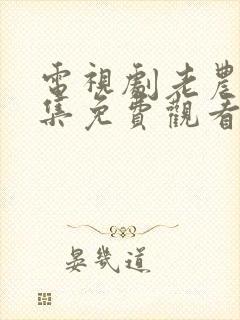 電視劇老農
集免費觀看
晏幾道